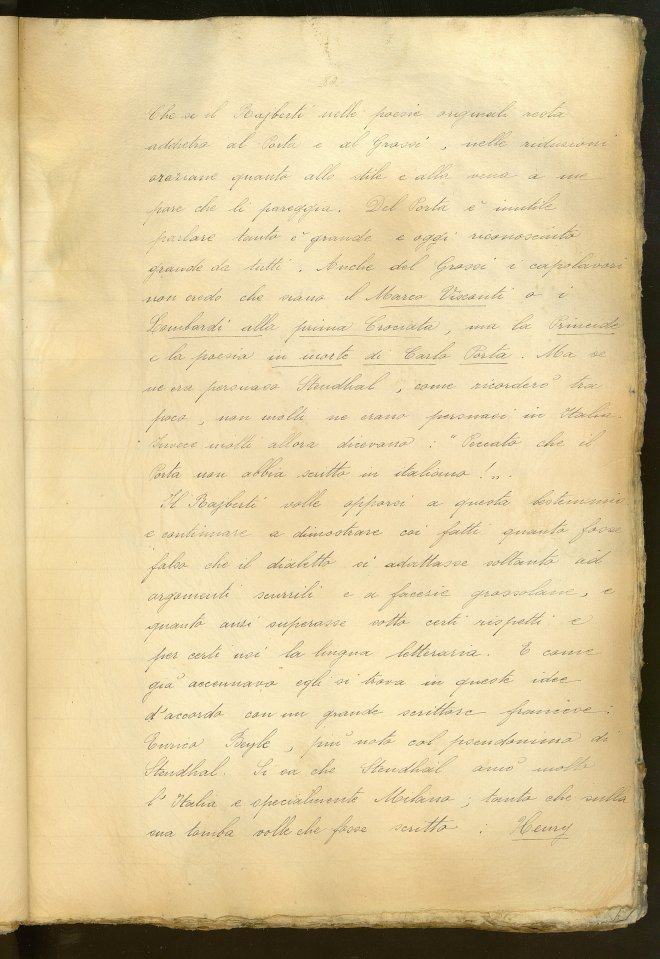 Che se il Rajberti nelle poesie originali resta
addietro al Porta e al Grossi, nelle riduzioni
oraziane quanto allo stile e alla vena a me
pare che li pareggia. Del Porta è inutile
parlare tanto è grande e oggi riconosciuto
grande da tutti. Anche del Grossi i capolavori
non credo che siano il Marco Visconti o i
Lombardi alla prima Crociata, ma la Prineide
e la poesia in morte di Carlo Porta. Ma se
ne era persuaso Stendhal, come ricorderò tra
poco, non molti ne erano persuasi in Italia.
Invece molti allora dicevano: "Peccato che il
Porta non abbia scritto in italiano!„.
Il Rajberti volle opporsi a questa bestemmia
e continuare a dimostrare coi fatti quanto fosse
falso che il dialetto si adattasse soltanto ad
argomenti scurrili e a facezie grossolane, e
quanto anzi superasse sotto certi rispetti e
per certi usi la lingua letteraria. E come
già accennavo egli si trova in queste idee
d'accordo con un grande scrittore francese:
Enrico Beyle, più noto col pseudonimo di
Stendhal. Si sa che Stendhal amò molto
l'Italia e specialmente Milano; tanto che sulla
sua tomba volle che fosse scritto: Henry